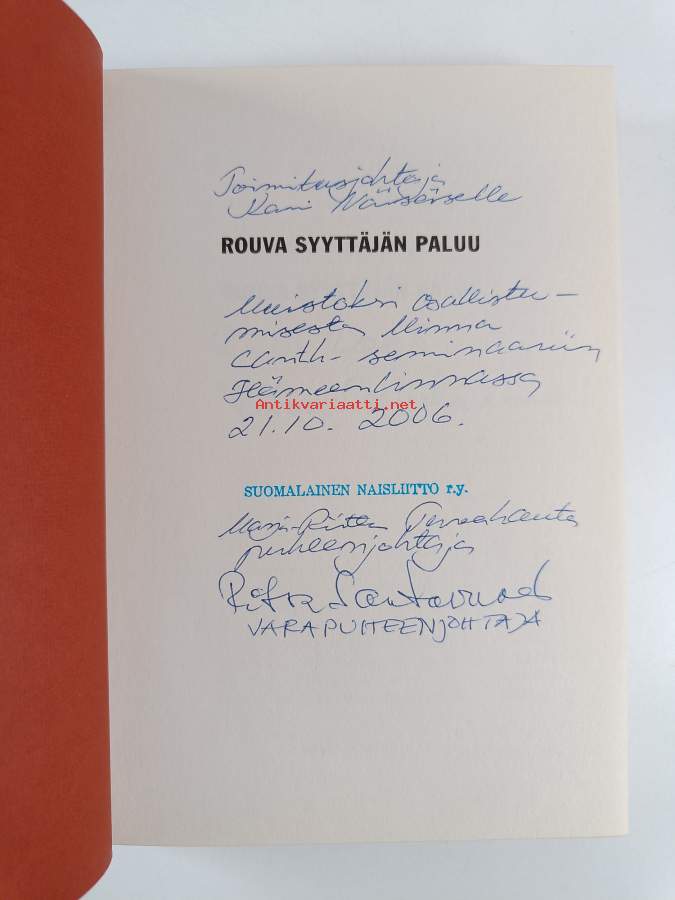 Toimitusjohtaja
Kari Näiselle
ROUVA SYYTTÄJÄN PALUU
Muistoksi osallistu-
misesta Minna
Canth- seminaariin
Hämeenlinnassa
Antikvariaatti.net
21.10. 2006.
SUOMALAINEN NAISLIITTO r.y.
Marja-Riitta Tervahauta
puheenjohtaja
Ritva
VARAPUHEENJOHTAJA